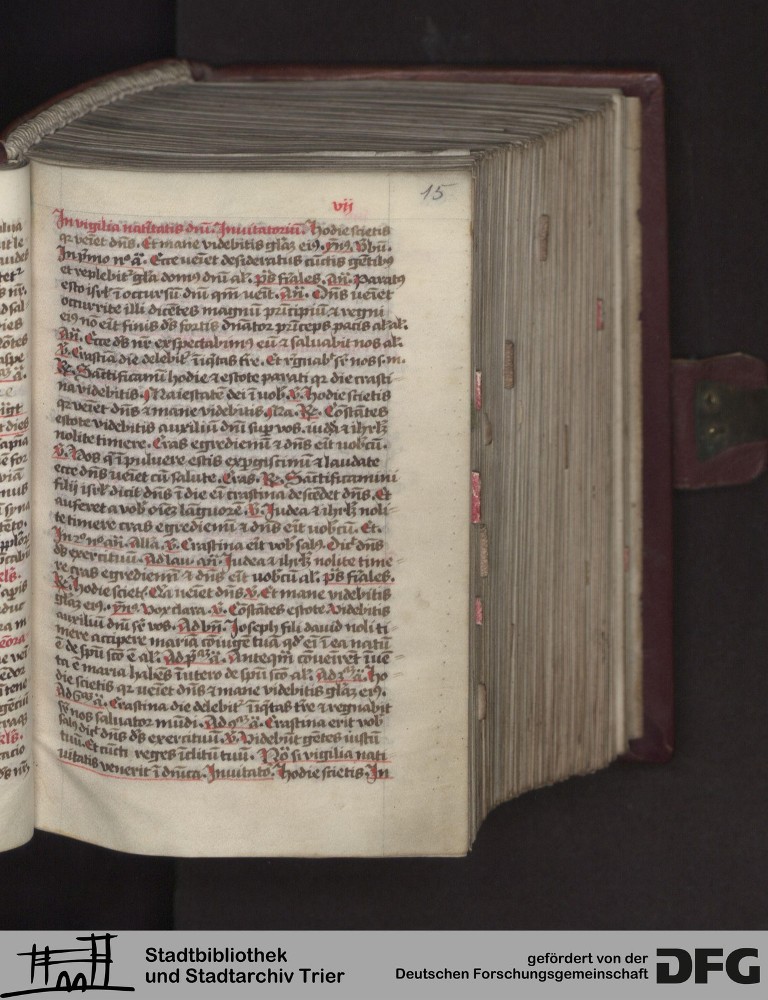 15
vij
In vigilia natītatis dnī. Inuitatoriū. Hodie scietis
qꝛ veīet dns. Et mane videbitis glāȝ eiꝰ. ym̄ꝰ. Vbū.
In pͥmo nº a. Ecce veīet desideratus cūctis gētibꝫ
et replebit᷑ glā domꝰ dnī al. ps̄ fīales. añ. Paratꝰ
esto isrl̄ ī occursū dnī qm̄ veīt. Añ. Dns veīet
occurrite illi dicētes magnū pͥncipiū ⁊ regni
eiꝰ nō eīt finis ds̄ fortis dnātor pͥnceps pacis al al.
Añ. Ecce ds̄ nr̄ exspectabimꝰ eū ⁊ saluabit nos al.
v̄. Crastīa die delebit᷑ īiq̄tas tre. Et rīgnabͭ sē nos s. m.
R̄. Sāctificam̄ī hodie ⁊ estote parati qꝛ die crasti
na videbitis. Maiestatē dei ī uob̄. v̄. Hodie scietis
qꝛ veīet dn̄s ⁊ mane videbitis. Ma. R̄. Cōstātes
estote videbitis auxiliū dnī sup vos. iuda ⁊ ihrl̄m
nolite timere. Cras egrediem̄ī ⁊ dn̄s eīt uobcū.
v̄. Vos q̄ ī puluere estis expgiscim̄ī ⁊ laudate
ecce dn̄s veīet cū salute. Cras. R̄. Sāctificamini
filij isrl̄ dicit dn̄s ī die eī crastina descēdet dn̄s. Et
auferet a vob̄ oēȝ lāguorē. v̄. Iudea ⁊ ihrl̄m noli-
te timere cras egrediem̄ī ⁊ dn̄s eīt uobcū. Et.
In 2º nº añ. Allā. v̄. Crastina eīt vob̄ salꝰ. Dic̄ dn̄s
ds̄ exercituū. Ad lau. añ. Iudea ⁊ ihrl̄m nolite time-
re cras egrediem̄ī ⁊ dn̄s eīt uobcū al. ps̄ fīales.
R̄. Hodie sciet. Qꝛ ueīet dn̄s. v̄. Et mane videbitis
glāȝ eiꝰ. ym̄ꝰ. Vox clara. v̄. Cōstātes estote. Videbitis
auxiliū dnī sē vos. Ad bn̄. Ioseph fili dauid noli ti
mere accipere mariā cōiuge tuā qd̄ eī ī ea natū
ē de spū scō ē al. Ad pͣ a. Anteqm̄ cōueīret īuē
ta ē maria habēs ī utero de spū scō al. Ad 3ᵃ a. Ho
die scietis qꝛ ueīet dn̄s ⁊ mane videbitis glāȝ eiꝰ.
Ad 6ᵃ a. Crastina die delebit᷑ īiq̄tas tre ⁊ regnabit
sē nos saluator mūdi. Ad 9ᵃ a. Crastina erit vob̄
salꝰ dic̄ dn̄s ds̄ exercituū. v̄. Videbūt gētes iustū
tuū. Et cūcti reges īclitū tuū. Nō si vigilia nati
uitatis venerit ī dnīca. Inuitato. Hodie scietis. In
Stadtbibliothek
und Stadtarchiv Trier
gefördert von der
Deutschen Forschungsgemeinschaft
DFG